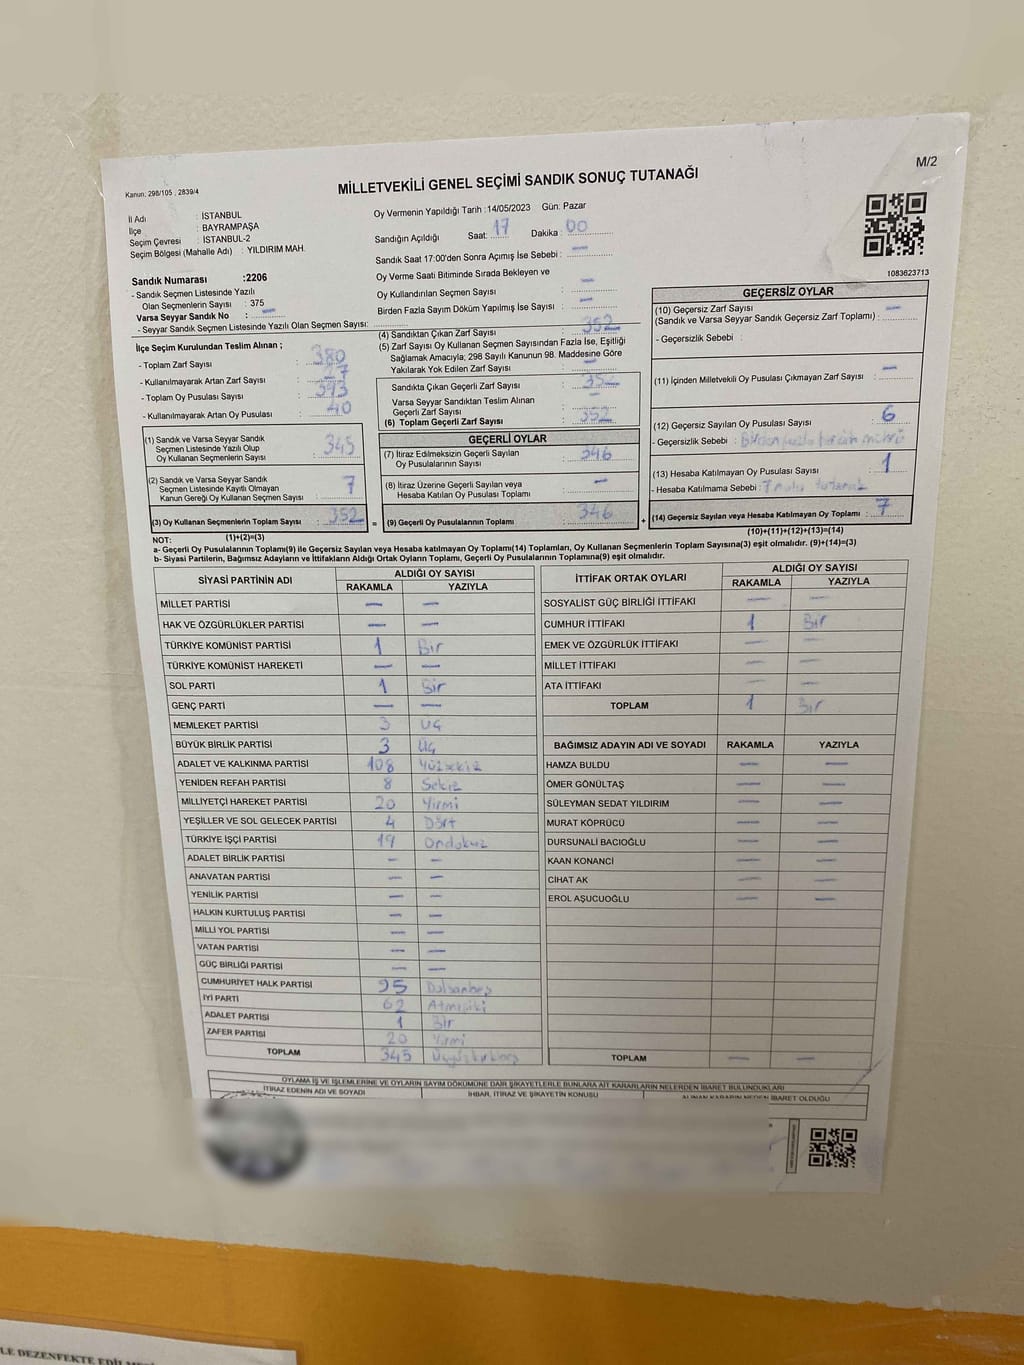 M/2
Kanun: 298/105 , 2839/4
MİLLETVEKİLİ GENEL SEÇİMİ SANDIK SONUÇ TUTANAĞI
İl Adı : İSTANBUL
İlçe : BAYRAMPAŞA
Seçim Çevresi : İSTANBUL-2
Seçim Bölgesi (Mahalle Adı) : YILDIRIM MAH.
Sandık Numarası :2206
- Sandık Seçmen Listesinde Yazılı
Olan Seçmenlerin Sayısı : 375
Varsa Seyyar Sandık No : —
- Seyyar Sandık Seçmen Listesinde Yazılı Olan Seçmen Sayısı:
İlçe Seçim Kurulundan Teslim Alınan ;
- Toplam Zarf Sayısı : 380
- Kullanılmayarak Artan Zarf Sayısı : 27
- Toplam Oy Pusulası Sayısı : 393
- Kullanılmayarak Artan Oy Pusulası : 40
(1) Sandık ve Varsa Seyyar Sandık
Seçmen Listesinde Yazılı Olup
Oy Kullanan Seçmenlerin Sayısı : 345
(2) Sandık ve Varsa Seyyar Sandık
Seçmen Listesinde Kayıtlı Olmayan
Kanun Gereği Oy Kullanan Seçmen Sayısı : 7
(3) Oy Kullanan Seçmenlerin Toplam Sayısı : 352 =
(1)+(2)=(3)
Oy Vermenin Yapıldığı Tarih :14/05/2023 Gün: Pazar
Sandığın Açıldığı Saat: 17 Dakika : 00
Sandık Saat 17:00'den Sonra Açımış İse Sebebi : —
Oy Verme Saati Bitiminde Sırada Bekleyen ve
Oy Kullandırılan Seçmen Sayısı : —
Birden Fazla Sayım Döküm Yapılmış İse Sayısı : —
(4) Sandıktan Çıkan Zarf Sayısı : 352
(5) Zarf Sayısı Oy Kullanan Seçmen Sayısından Fazla İse, Eşitliği
Sağlamak Amacıyla; 298 Sayılı Kanunun 98. Maddesine Göre
Yakılarak Yok Edilen Zarf Sayısı : —
Sandıkta Çıkan Geçerli Zarf Sayısı : 352
Varsa Seyyar Sandıktan Teslim Alınan
Geçerli Zarf Sayısı : —
(6) Toplam Geçerli Zarf Sayısı : 352
GEÇERLİ OYLAR
(7) İtiraz Edilmeksizin Geçerli Sayılan
Oy Pusulalarının Sayısı : 346
(8) İtiraz Üzerine Geçerli Sayılan veya
Hesaba Katılan Oy Pusulası Toplamı : —
(9) Geçerli Oy Pusulalarının Toplamı : 346 +
1083623713
GEÇERSİZ OYLAR
(10) Geçersiz Zarf Sayısı
(Sandık ve Varsa Seyyar Sandık Geçersiz Zarf Toplamı) : —
- Geçersizlik Sebebi :
(11) İçinden Milletvekili Oy Pusulası Çıkmayan Zarf Sayısı : —
(12) Geçersiz Sayılan Oy Pusulası Sayısı : 6
- Geçersizlik Sebebi : Birden fazla tercih mührü
(13) Hesaba Katılmayan Oy Pusulası Sayısı : 1
- Hesaba Katılmama Sebebi : 7 nolu tutanak
(14) Geçersiz Sayılan veya Hesaba Katılmayan Oy Toplamı : 7
(10)+(11)+(12)+(13)=(14)
NOT:
a- Geçerli Oy Pusulalarının Toplamı(9) ile Geçersiz Sayılan veya Hesaba katılmayan Oy Toplamı(14) Toplamları, Oy Kullanan Seçmenlerin Toplam Sayısına(3) eşit olmalıdır. (9)+(14)=(3)
b- Siyasi Partilerin, Bağımsız Adayların ve İttifakların Aldığı Ortak Oyların Toplamı, Geçerli Oy Pusulalarının Toplamına(9) eşit olmalıdır.
SİYASİ PARTİNİN ADI ALDIĞI OY SAYISI
RAKAMLA YAZIYLA
MİLLET PARTİSİ — —
HAK VE ÖZGÜRLÜKLER PARTİSİ — —
TÜRKİYE KOMÜNİST PARTİSİ 1 Bir
TÜRKİYE KOMÜNİST HAREKETİ — —
SOL PARTİ 1 Bir
GENÇ PARTİ — —
MEMLEKET PARTİSİ 3 Üç
BÜYÜK BİRLİK PARTİSİ 3 Üç
ADALET VE KALKINMA PARTİSİ 108 Yüzsekiz
YENİDEN REFAH PARTİSİ 8 Sekiz
MİLLİYETÇİ HAREKET PARTİSİ 20 Yirmi
YEŞİLLER VE SOL GELECEK PARTİSİ 4 Dört
TÜRKİYE İŞÇİ PARTİSİ 19 Ondokuz
ADALET BİRLİK PARTİSİ — —
ANAVATAN PARTİSİ — —
YENİLİK PARTİSİ — —
HALKIN KURTULUŞ PARTİSİ — —
MİLLİ YOL PARTİSİ — —
VATAN PARTİSİ — —
GÜÇ BİRLİĞİ PARTİSİ — —
CUMHURİYET HALK PARTİSİ 95 Doksanbeş
İYİ PARTİ 62 Atmışiki
ADALET PARTİSİ 1 Bir
ZAFER PARTİSİ 20 Yirmi
TOPLAM 345 Üçyüzkırkbeş
İTTİFAK ORTAK OYLARI ALDIĞI OY SAYISI
RAKAMLA YAZIYLA
SOSYALİST GÜÇ BİRLİĞİ İTTİFAKI — —
CUMHUR İTTİFAKI 1 Bir
EMEK VE ÖZGÜRLÜK İTTİFAKI — —
MİLLET İTTİFAKI — —
ATA İTTİFAKI — —
TOPLAM 1 Bir
BAĞIMSIZ ADAYIN ADI VE SOYADI RAKAMLA YAZIYLA
HAMZA BULDU — —
ÖMER GÖNÜLTAŞ — —
SÜLEYMAN SEDAT YILDIRIM — —
MURAT KÖPRÜCÜ — —
DURSUNALİ BACIOĞLU — —
KAAN KONANCİ — —
CİHAT AK — —
EROL AŞUCUOĞLU — —
TOPLAM — —
OYLAMA İŞ VE İŞLEMLERİNE VE OYLARIN SAYIM DÖKÜMÜNE DAİR ŞİKAYETLERLE BUNLARA AİT KARARLARIN NELERDEN İBARET BULUNDUKLARI
İTİRAZ EDENİN ADI VE SOYADI İHBAR, İTİRAZ VE ŞİKAYETİN KONUSU ALINAN KARARIN NEDEN İBARET OLDUĞU
LE DEZENFEKTE